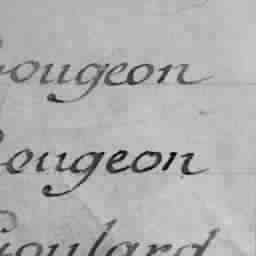 Gougeon
Gougeon
Goulard